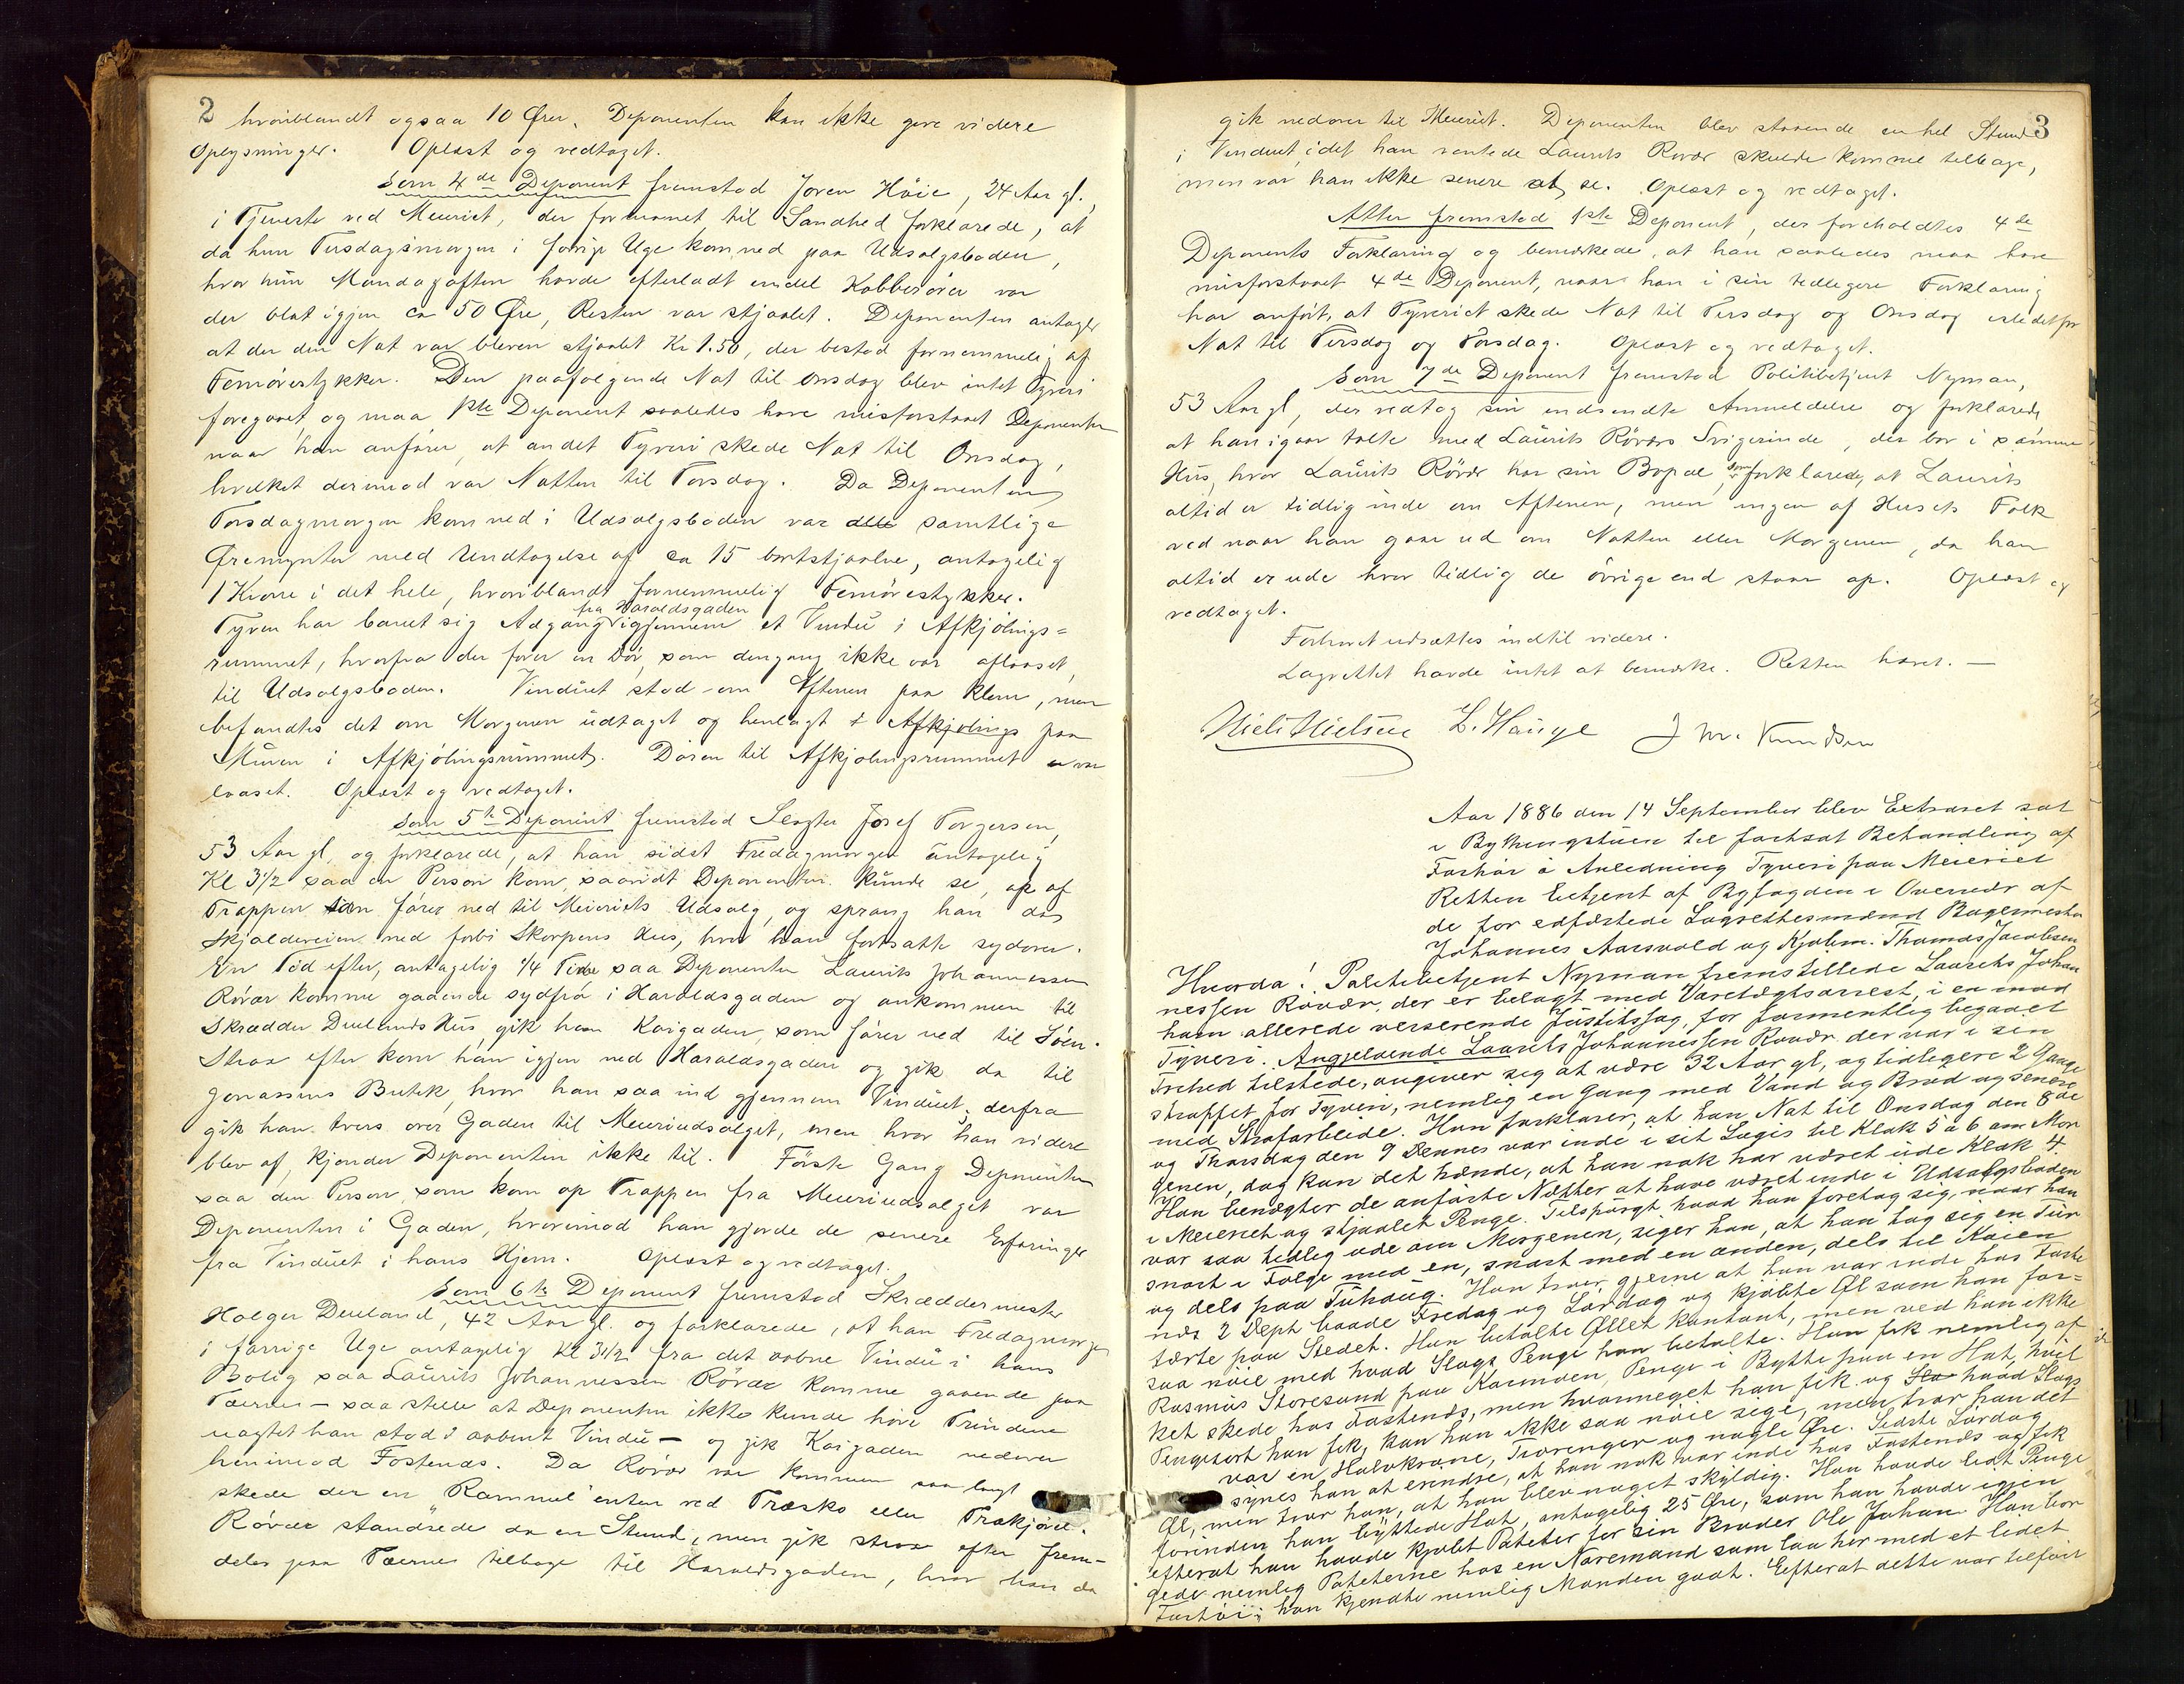 2
hvoriblandt ogsaa 10 Ører. Deponenten kan ikke give videre
Oplysninger. Oplæst og vedtaget.
Som 4de Deponent fremstod Joren Høie, 24 Aar gl.,
i Tjeneste ved Meieriet, der formanet til Sandhed forklarede, at
da hun Tirsdagsmorgen i forrige Uge kom ned paa Udsalgsboden,
hvor hun Mandagaften havde efterladt endel Kobberører var
der blot igjen ca 50 Øre, Resten var stjaalet. Deponenten antager
at der den Nat var bleven stjaalet Kr 1.50, der bestod fornemmelig af
Femørestykker. Den paafølgende Nat til Onsdag blev intet Tyveri
foregaaet, og maa 1ste Deponent saaledes have misforstaaet Deponenten
naar han anfører, at andet Tyveri skede Nat til Onsdag,
hvilket derimod var Natten til Torsdag. Da Deponenten
Torsdagmorgen kom ned i Udsalgsboden var alle samtlige
Øremynter med Undtagelse af ca 15 bortstjaalne, antagelig
1 Krone i det hele, hvoriblandt fornemmelig Femørestykker.
fra Haraldsgaden
Tyven har banet sig Adgang igjennem et Vindu i Afkjølings=
rummet, hvorfra der fører en Dør, som dengang ikke var aflaaset,
til Udsalgsboden. Vinduet stod om Aftenen paa Klem, men
befandtes det om Morgenen udtaget og henlagt i Afkjølings paa
Muren i Afkjølingsrummet. Døren til Afkjølingsrummet var
laaset. Oplæst og vedtaget.
Som 5te Deponent fremstod Slagter Josef Torgersen,
53 Aar gl. og forklarede, at han sidst Fredagmorgen antagelig
Kl 3½ saa en Person kom, saavidt Deponenten kunde se, op af
Trappen som fører ned til Meieriets Udsalg, og sprang han da
Skjoldeveien ned forbi Skorpens Hus, hvor han fortsatte sydover.
En Tid efter, antagelig ¼ Time saa Deponenten Laurits Johannessen
Røvær komme gaaende sydfra i Haraldsgaden og ankommen til
Skrædder Duelands Hus, gik han Kaigaden, som fører ned til Søen.
Strax efter kom han igjen ned Haraldsgaden og gik da til
Jonassens Butik, hvor han saa ind gjennem Vinduet, derfra
gik han tvers over Gaden til Meieriudsalget, men hvor han videre
blev af, kjender Deponenten ikke til. Første Gang Deponenten
saa den Person, som kom op Trappen fra Meieriudsalget var
Deponenten i Gaden, hvorimod han gjorde de senere Erfaringer
fra Vinduet i hans Hjem. Oplæst og vedtaget.
Som 6te Deponent fremstod Skræddermester
Holger Dueland, 42 Aar gl. og forklarede, at han Fredagmorgen
i forrige Uge antagelig Kl 3½ fra det aabne Vindu i hans
Bolig saa Laurits Johannessen Røvær komme gaaende paa
Tæerne – saa stille at Deponenten ikke kunde høre Trinene
uagtet han stod i aabent Vindu – og gik Kaigaden nedover
henimod Fostenæs. Da Røvær var kommen saa langt
skede der en "Rammel" enten ved Træsko eller Trækjørel.
Røvær standsede da en Stund, men gik strax efter frem-
deles paa Tæerne tilbage til Haraldsgaden, hvor han da
3
gik nedover til Meieriet. Deponenten blev staaende en hel Stund
i Vinduet, idet han ventede Laurits Røvær skulde komme tilbage,
men var han ikke senere at se. Oplæst og vedtaget.
Atter fremstod 1ste Deponent, der foreholdtes 4de
Deponents Forklaring og bemærkede, at han saaledes maa have
misforstaaet 4de Deponent, naar han i sin tidligere Forklaring
har anført, at Tyveriet skede Nat til Tirsdag og Onsdag istedetfor
Nat til Tirsdag og Torsdag. Oplæst og vedtaget.
Som 7de Deponent fremstod Politibetjent Nyman,
53 Aar gl, der vedtog sin indsendte Anmeldelse og forklarede
at han igaar talte med Laurits Røværs Svigerinde, der bor i samme
Hus, hvor Laurits Røvær har sin Bopæl, som forklarede, at Laurits
altid er tidlig inde om Aftenen, men ingen af Husets Folk
ved naar han gaar ud om Natten eller Morgenen, da han
altid er ude hvor tidlig de øvrige end staar op. Oplæst og
vedtaget.
Forhøret udsættes indtil videre.
Lagrettet havde intet at bemærke. Retten hævet. –
Niels Nielsen L. Hauge J M. Knudsen
Aar 1886 den 14 September blev Extraret sat
i Bythingstuen til fortsat Behandling af
Forhør i Anledning Tyveri paa Meieriet
Retten betjent af Byfogden i Overvær af
de før edfæstede Lagrettesmænd Bagermester
Johannes Aarsvold og Kjøbm. Thomas Jacobsen
Hvorda! Politibetjent Nyman fremstillede Laurits Johan
nessen Røvær, der er belagt med Varetægtsarrest, i en mod
ham allerede verserende Justitssag, for formentlig begaaet
Tyveri. Angjeldende Laurits Johannessen Røvær der var i sin
Frihed tilstede, angiver sig at være 32 Aar gl, og tidligere 2 Gange
straffet for Tyveri, nemlig en Gang med Vand og Brød og senere
med Strafarbeide. Han forklarer, at han Nat til Onsdag den 8de
og Thorsdag den 9 Dennes var inde i sit Logis til Klok 5 a 6 om Mor
genen, dog kan det hænde, at han nok har været ude Klok 4.
Han benægter de anførte Nætter at have været inde i Udsalgsboden
i Meieriet og stjaalet Penge. Tilspurgt, hvad han foretog sig, naar han
var saa tidlig ude om Morgenen, siger han, at han tog sig en Tur
snart i Følge med en, snart med en anden, dels til Kaien
og dels paa Tuhaug. Han tror gjerne at han var inde hos Foste
næs 2 Septr baade Fredag og Lørdag og kjøbte Øl som han for=
tærte paa Stedet. Han betalte Øllet kontant, men ved han ikke
saa nøie med hvad Slags Penge han betalte. Han fik nemlig af
Rasmus Storesund paa Karmøen, Penge i Bytte paa en Hat, hvil
ket skede hos Fostenæs, men hvormeget han fik og Sla hvad Slags
Pengesort han fik, kan han ikke saa nøie sige, men tror han det
var en Halvkrone, Tiørenger og nogle Øre. Sidste Lørdag
synes han at erindre, at han nok var inde hos Fostenæs og fik
Øl, men tror han, at han blev noget skyldig. Han havde lidt Penge
forinden han byttede Hat, antagelig 25 Øre, som han havde igjen
efterat han havde kjøbt Poteter for sin Broder Ole Johan. Han bor
gede nemlig Poteterne hos en Nøremand som laa her med et lidet
Fartøi; han kjendte nemlig Manden godt. Efterat dette var tilført